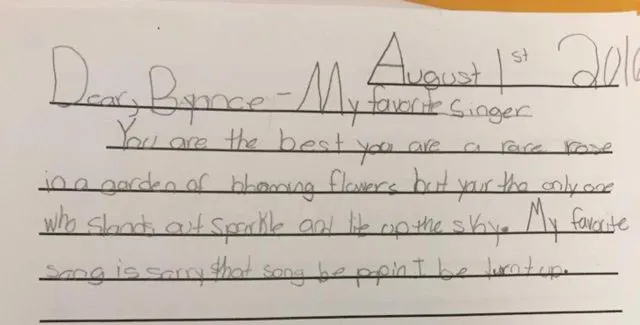 August 1st 2016
Dear, Bynnce - My favorite singer
You are the best you are a rare rose
in a garden of bhoming flowers but your the only one
who stands out sparkle and lite up the sky. My favorite
song is sorry that song be popin I be turnt up.